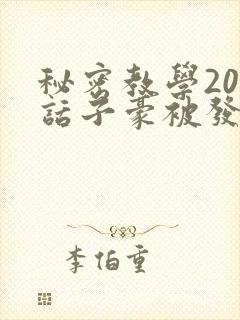 秘密教學20
話子豪被發
李伯重